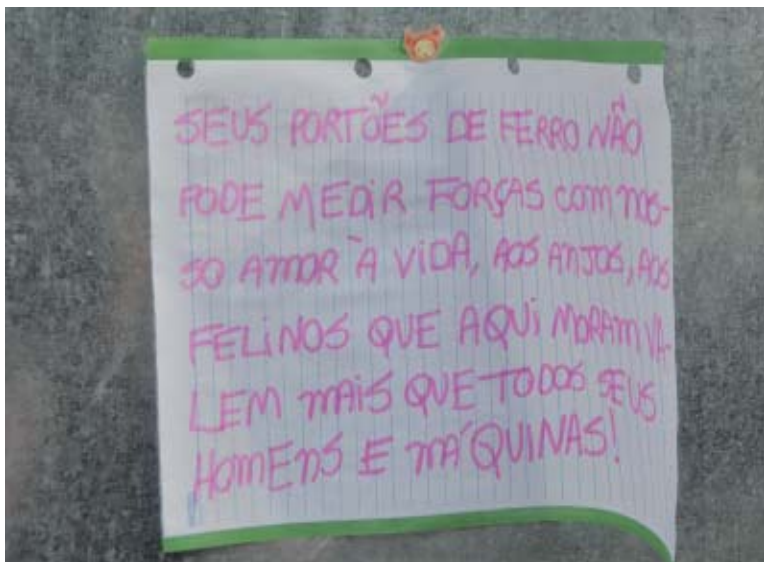 SEUS PORTÕES DE FERRO NÃO
PODE MEDIR FORÇAS COM NOS-
SO AMOR À VIDA, AOS ANJOS, AOS
FELINOS QUE AQUI MORAM VA-
LEM MAIS QUE TODOS SEUS
HOMENS E MÁQUINAS!